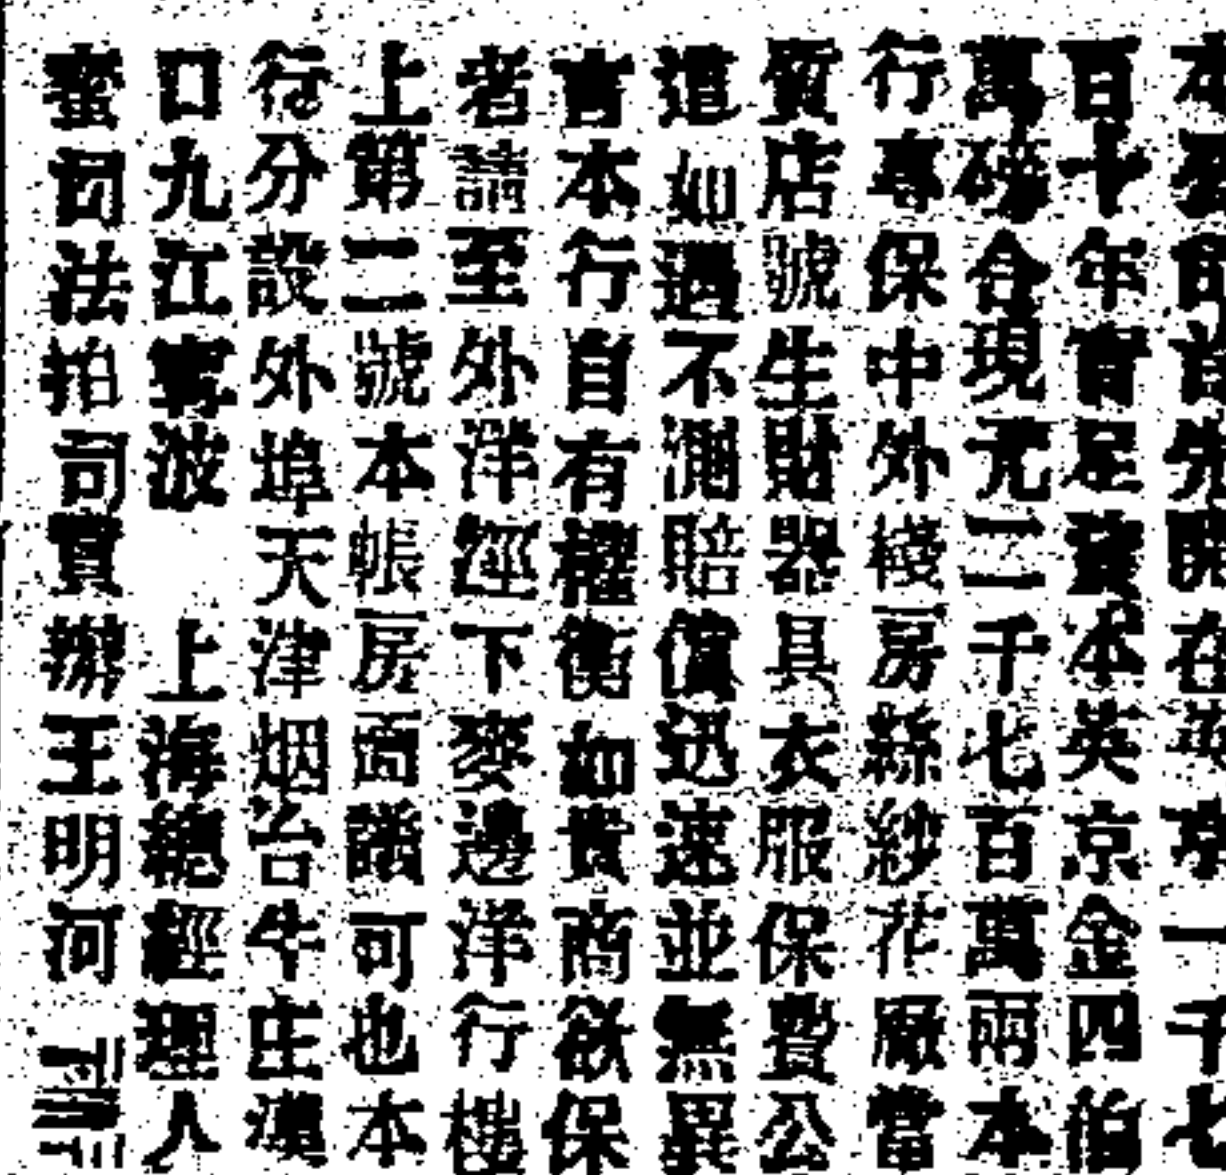 本
開在英京一千七
百十年實足資本英京金四伯
萬磅合現元二千七百萬兩本
行專保中外棧房絲紗花廠當
質店號生財器具衣服保費公
道如遇不測賠償迅速並無異
言本行自有權衡如貴商欲保
者請至外洋涇下麥邊洋行樓
上第二號本帳房面議可也本
行分設外埠天津烟台牛庄漢
口九江寧波 上海總經理人
司法拍司買辦王明河